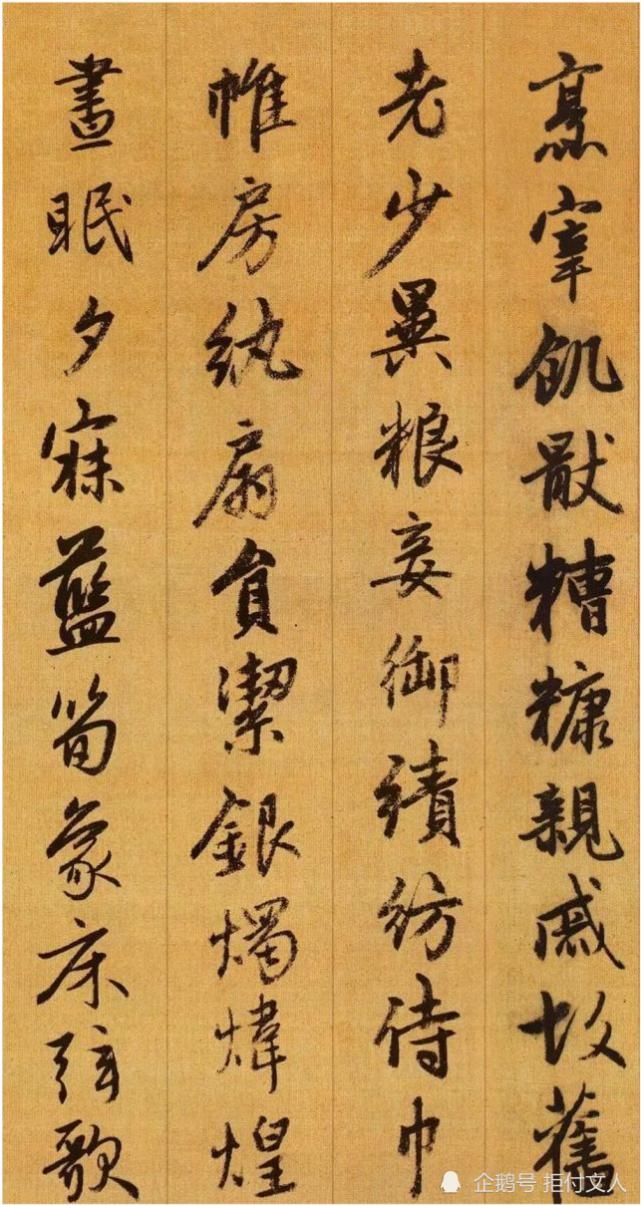 烹宰飢猒糟糠親戚故舊
老少異粮妾御績紡侍巾
帷房紈扇員潔銀燭煒煌
晝眠夕寐藍笋象床弦歌
企鹅号 拒付文人